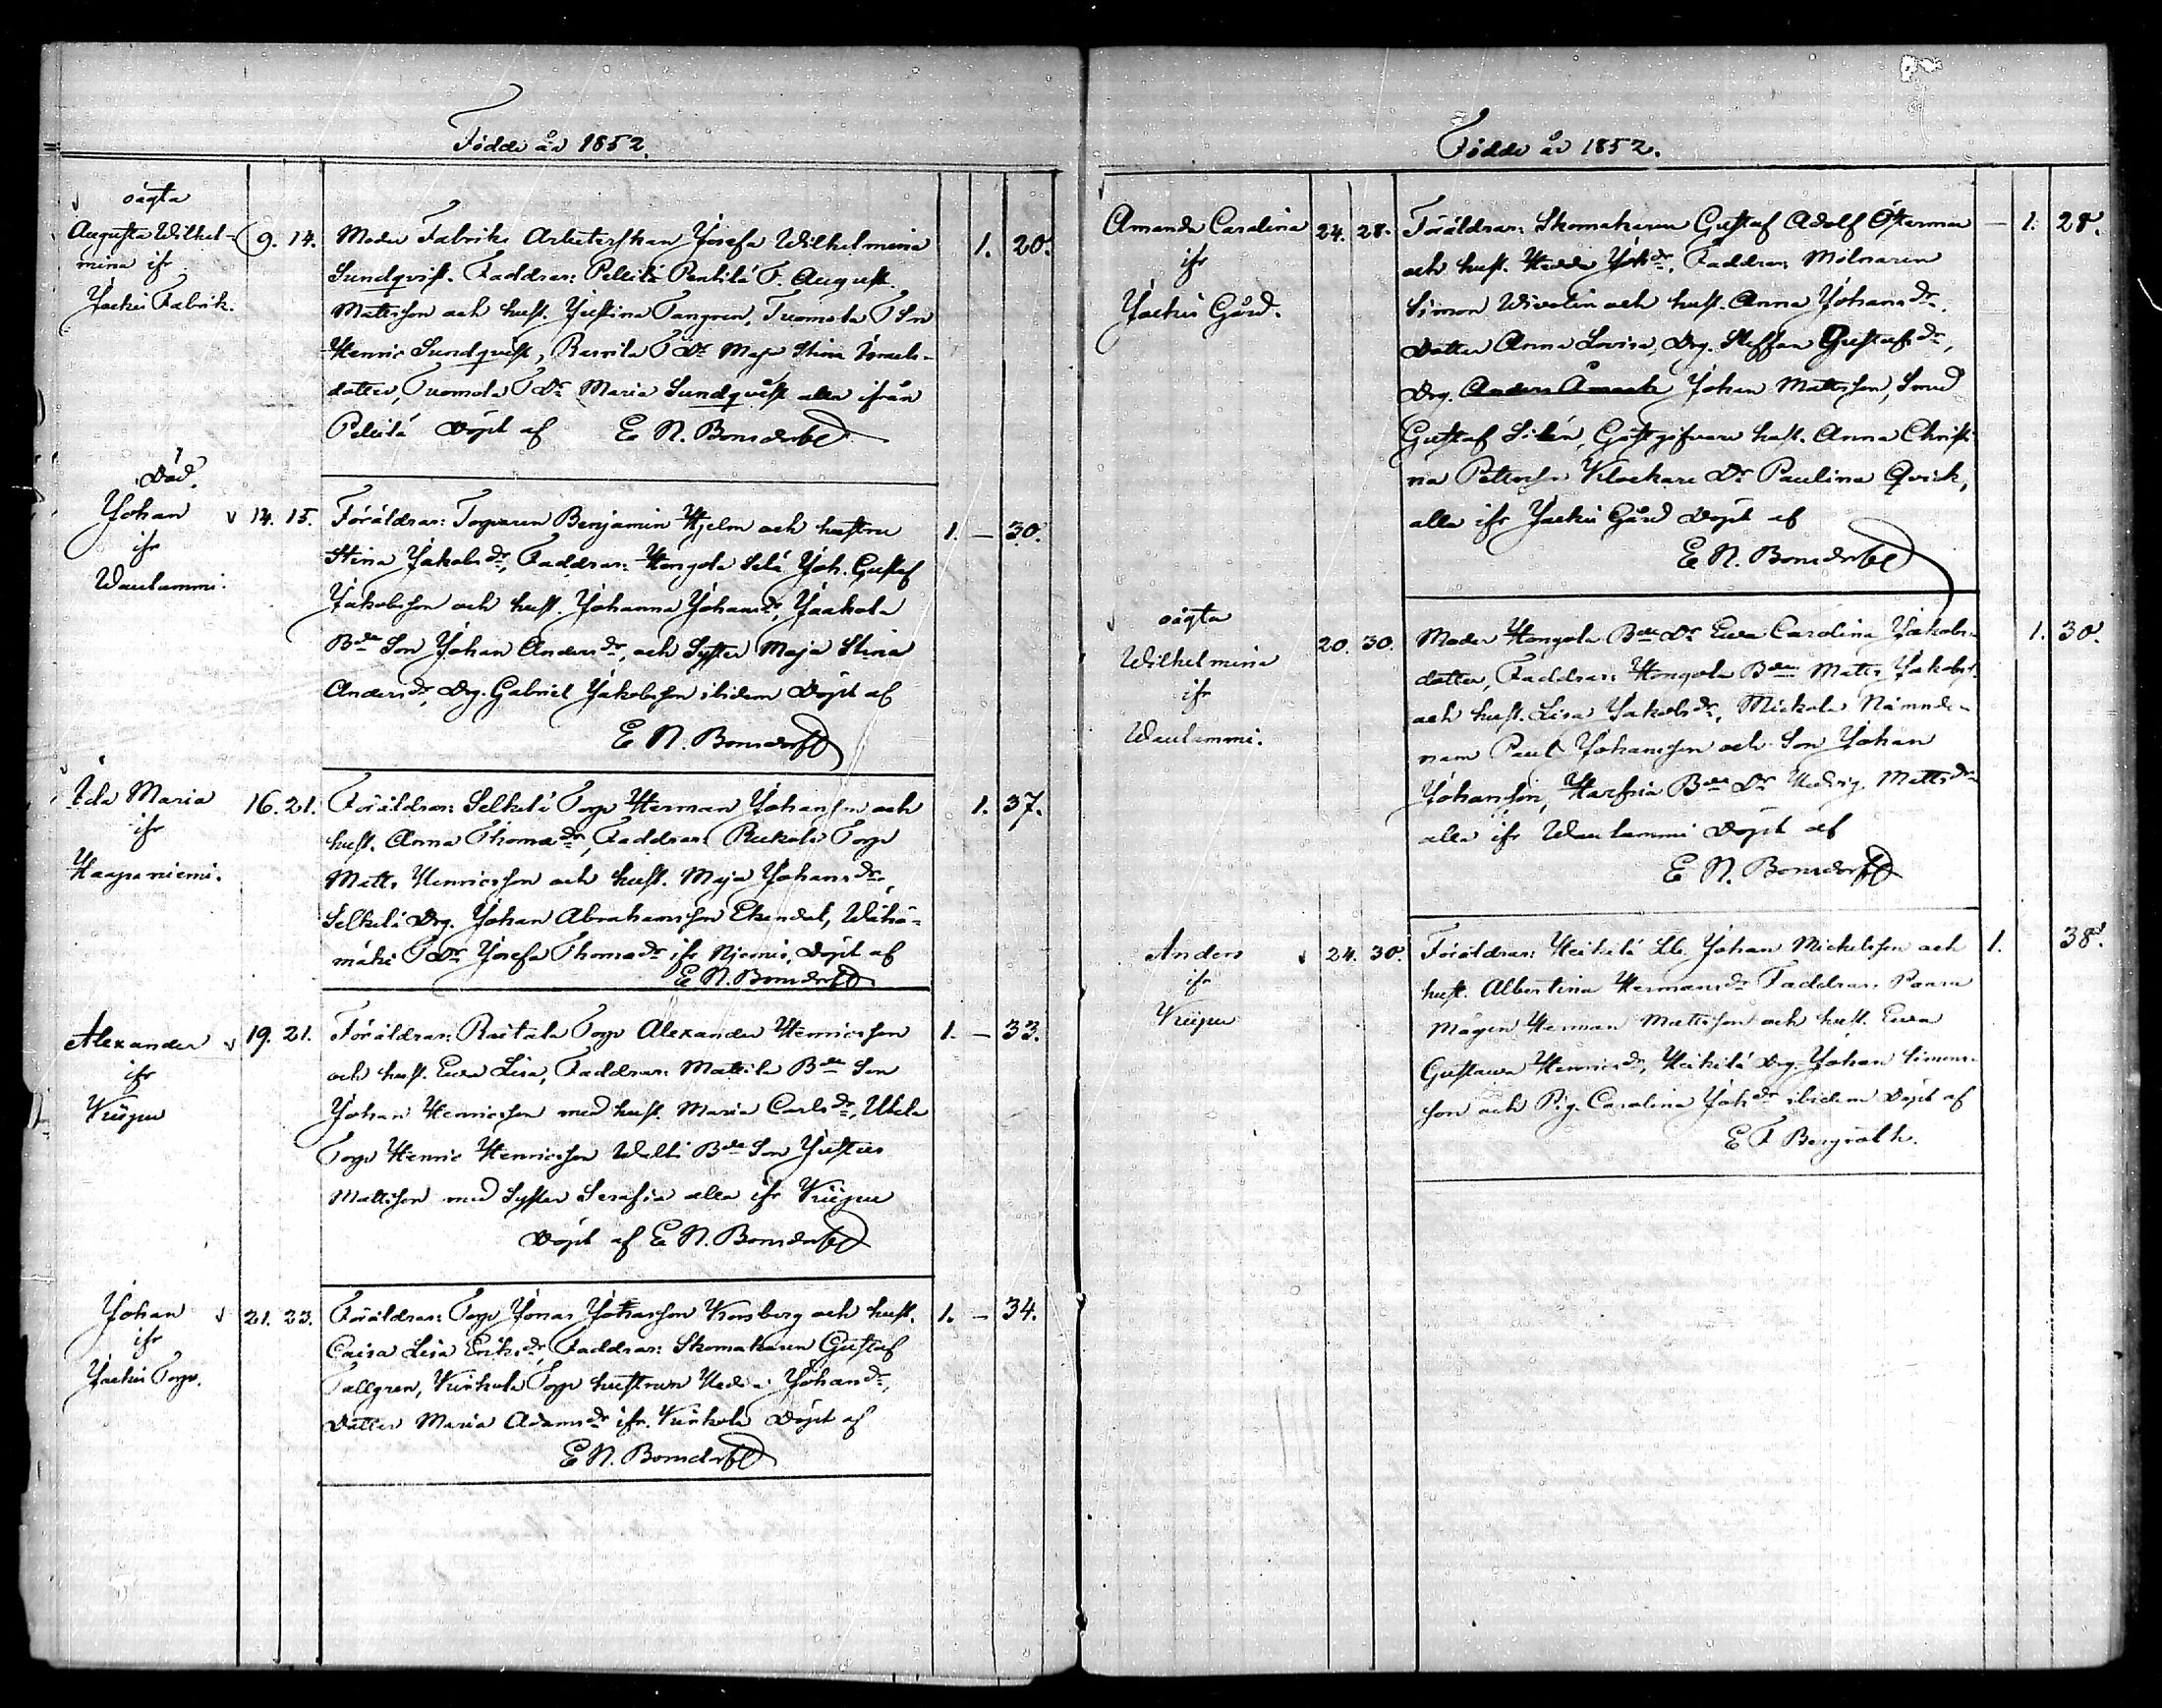 Födde år 1852.
oägta
Augusta Wilhel-
mina ifr
Jockis Fabrik.
9. 14.
Moder Fabriks Arbeterskan Josefa Wilhelmina
Sundqvist. Faddrar: Pellilä Penttilä T. August
Mattsson och hust. Justina Tangren, Tuomola T Son
Henric Sundqvist, T Dr Maja Stina Israels-
dotter, Tuomola T Dr Maria Sundqvist alla ifrån
Pellilä Döpt af E N. Bonsdorff
1. 20.
Död.
Johan
ifr
Waulammi.
14. 15.
Föräldrar: Torparen Benjamin Hjelm och hustru
Stina Jakobsdr, Faddrar: Hongola Joh. Gustaf
Jakobsson och hust. Johanna Johansdr, Jaakola
Bde Son Johan Andersdr, och Syster Maja Stina
Andersdr, Drg. Gabriel Jakobsson ibidem Döpt af
E N. Bonsdorff
1. – 30.
Ida Maria
ifr
Haapaniemi.
16. 21.
Föräldrar: Selkelä Torp Herman Johansson och
hust. Anna Thomædr, Faddrar: Torp
Matts Henricsson och hust. Maja Johansdr,
Selkelä Drg. Johan Abrahamsson Ekendal, Wähä-
mäki T Dr Josefa Thomædr ifr Döpt af
E N. Bonsdorff
1. 37.
Alexander
ifr
Kiipu
19. 21.
Föräldrar: Raitala Torp Alexander Henricsson
och hust. Ewa Lisa, Faddrar: Mattila Bde Son
Johan Henricsson med hust. Maria Carlsdr, Ukila
Torp Henric Henricsson Walli Bde Son Justus
Mattsson med Syster Serafia alla ifr Kiipu
Döpt af E N. Bonsdorff
1. – 33.
Johan
ifr
Jockis Torp.
21. 23.
Föräldrar: Torp Jonas Johansson Kronberg och hust.
Caisa Lisa Eriksdr, Faddrar: Skomakaren Gustaf
Tallgren, Kuikula Torp hustrun Hedda Johandr,
Dotter Maria Adamsdr ifr. Kuikula Döpt af
E N. Bonsdorff
1. – 34.
Födde år 1852.
Amanda Carolina
ifr
Jockis Gård.
24. 28.
Föräldrar: Skomakaren Gustaf Adolf Österman
och hust. Hedda Johdr, Faddrar: Mölnaren
Simon Wivolin och hust. Anna Johansdr.
Dotter Anna Lovisa, Drg. Steffan Gustafsdr,
Drg. Johan Mattsson, Smed
Gustaf Silén, Gästgifvare hust. Anna Christi
na Pettersson Klockare Dr Paulina Qvick,
alla ifr Jockis Gård Döpt af
E N. Bonsdorff
– 1. 28.
oägta
Wilhelmina
ifr
Waulammi.
20. 30.
Moder Hongola Bde Dr Ewa Carolina Jakobs-
dotter, Faddrar: Hongola Bden Matts Jakobss.
och hust. Lisa Jakobsdr, Mickola Nämnde-
man Paul Johansson och Son Johan
Johansson, Harfvia Bde Dr Hedvig Mattsdr
alla ifr Waulammi Döpt af
E N. Bonsdorff
1. 30.
Anders
ifr
Kiipu
24. 30.
Föräldrar: Heikilä Johan Mickelsson och
hust. Albertina Hermansdr Faddrar: Paara
Mågen Herman Mattsson och hust. Ewa
Gustawa Henricsdr, Heikilä Drg. Johan Simons-
son och Pig. Carolina Johdr ibidem Döpt af
E F Bergroth.
1. 38.